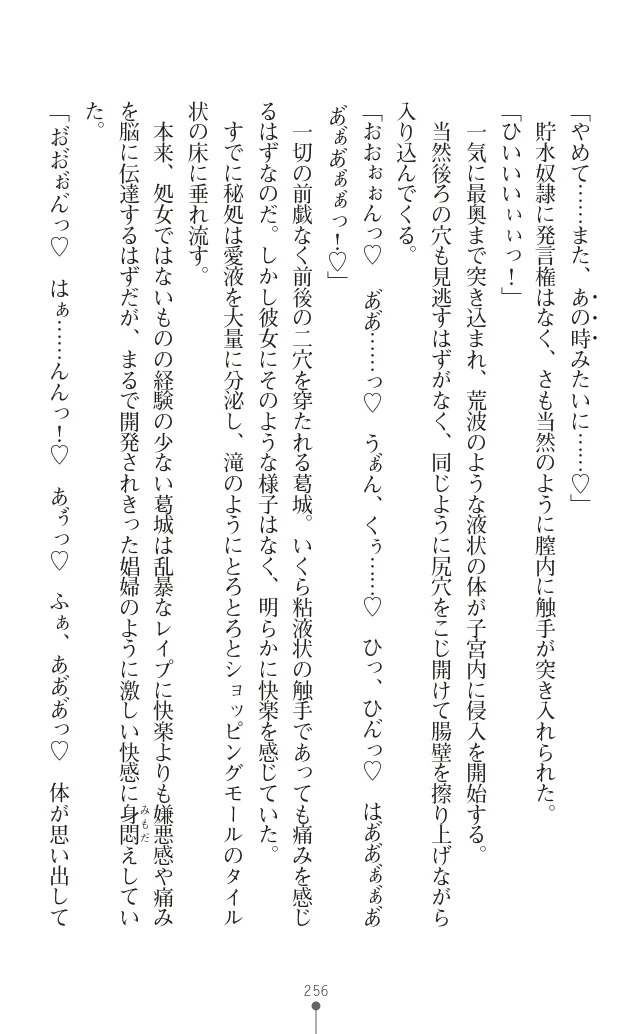 「やめて……また、あの時みたいに……♡」
　貯水奴隷に発言権はなく、さも当然のように膣内に触手が突き入れられた。
「ひいいいぃぃっ！」
　一気に最奥まで突き込まれ、荒波のような液状の体が子宮内に侵入を開始する。
　当然後ろの穴も見逃すはずがなく、同じように尻穴をこじ開けて腸壁を擦り上げながら
入り込んでくる。
「おおぉぉんっ♡　あ゙あ゙……っ♡　うぁん、くぅ……♡　ひっ、ひん゙っ♡　はあ゙あ゙ぁ゙ぁ゙あ゙
あ゙ぁ゙あ゙ぁ゙ぁ゙っ！♡」
　一切の前戯なく前後の二穴を穿たれる葛城。いくら粘液状の触手であっても痛みを感じ
るはずなのだ。しかし彼女にそのような様子はなく、明らかに快楽を感じていた。
　すでに秘処は愛液を大量に分泌し、滝のようにとろとろとショッピングモールのタイル
状の床に垂れ流す。
　本来、処女ではないものの経験の少ない葛城は乱暴なレイプに快楽よりも嫌悪感や痛み
を脳に伝達するはずだが、まるで開発されきった娼婦のように激しい快感に身悶えしてい
みもだ
た。
「お゙お゙ぉ゙ん゙っ♡　はぁ……んんっ！♡　あ゙ぅっ♡　ふぁ、あ゙あ゙あ゙っ♡　体が思い出して
256